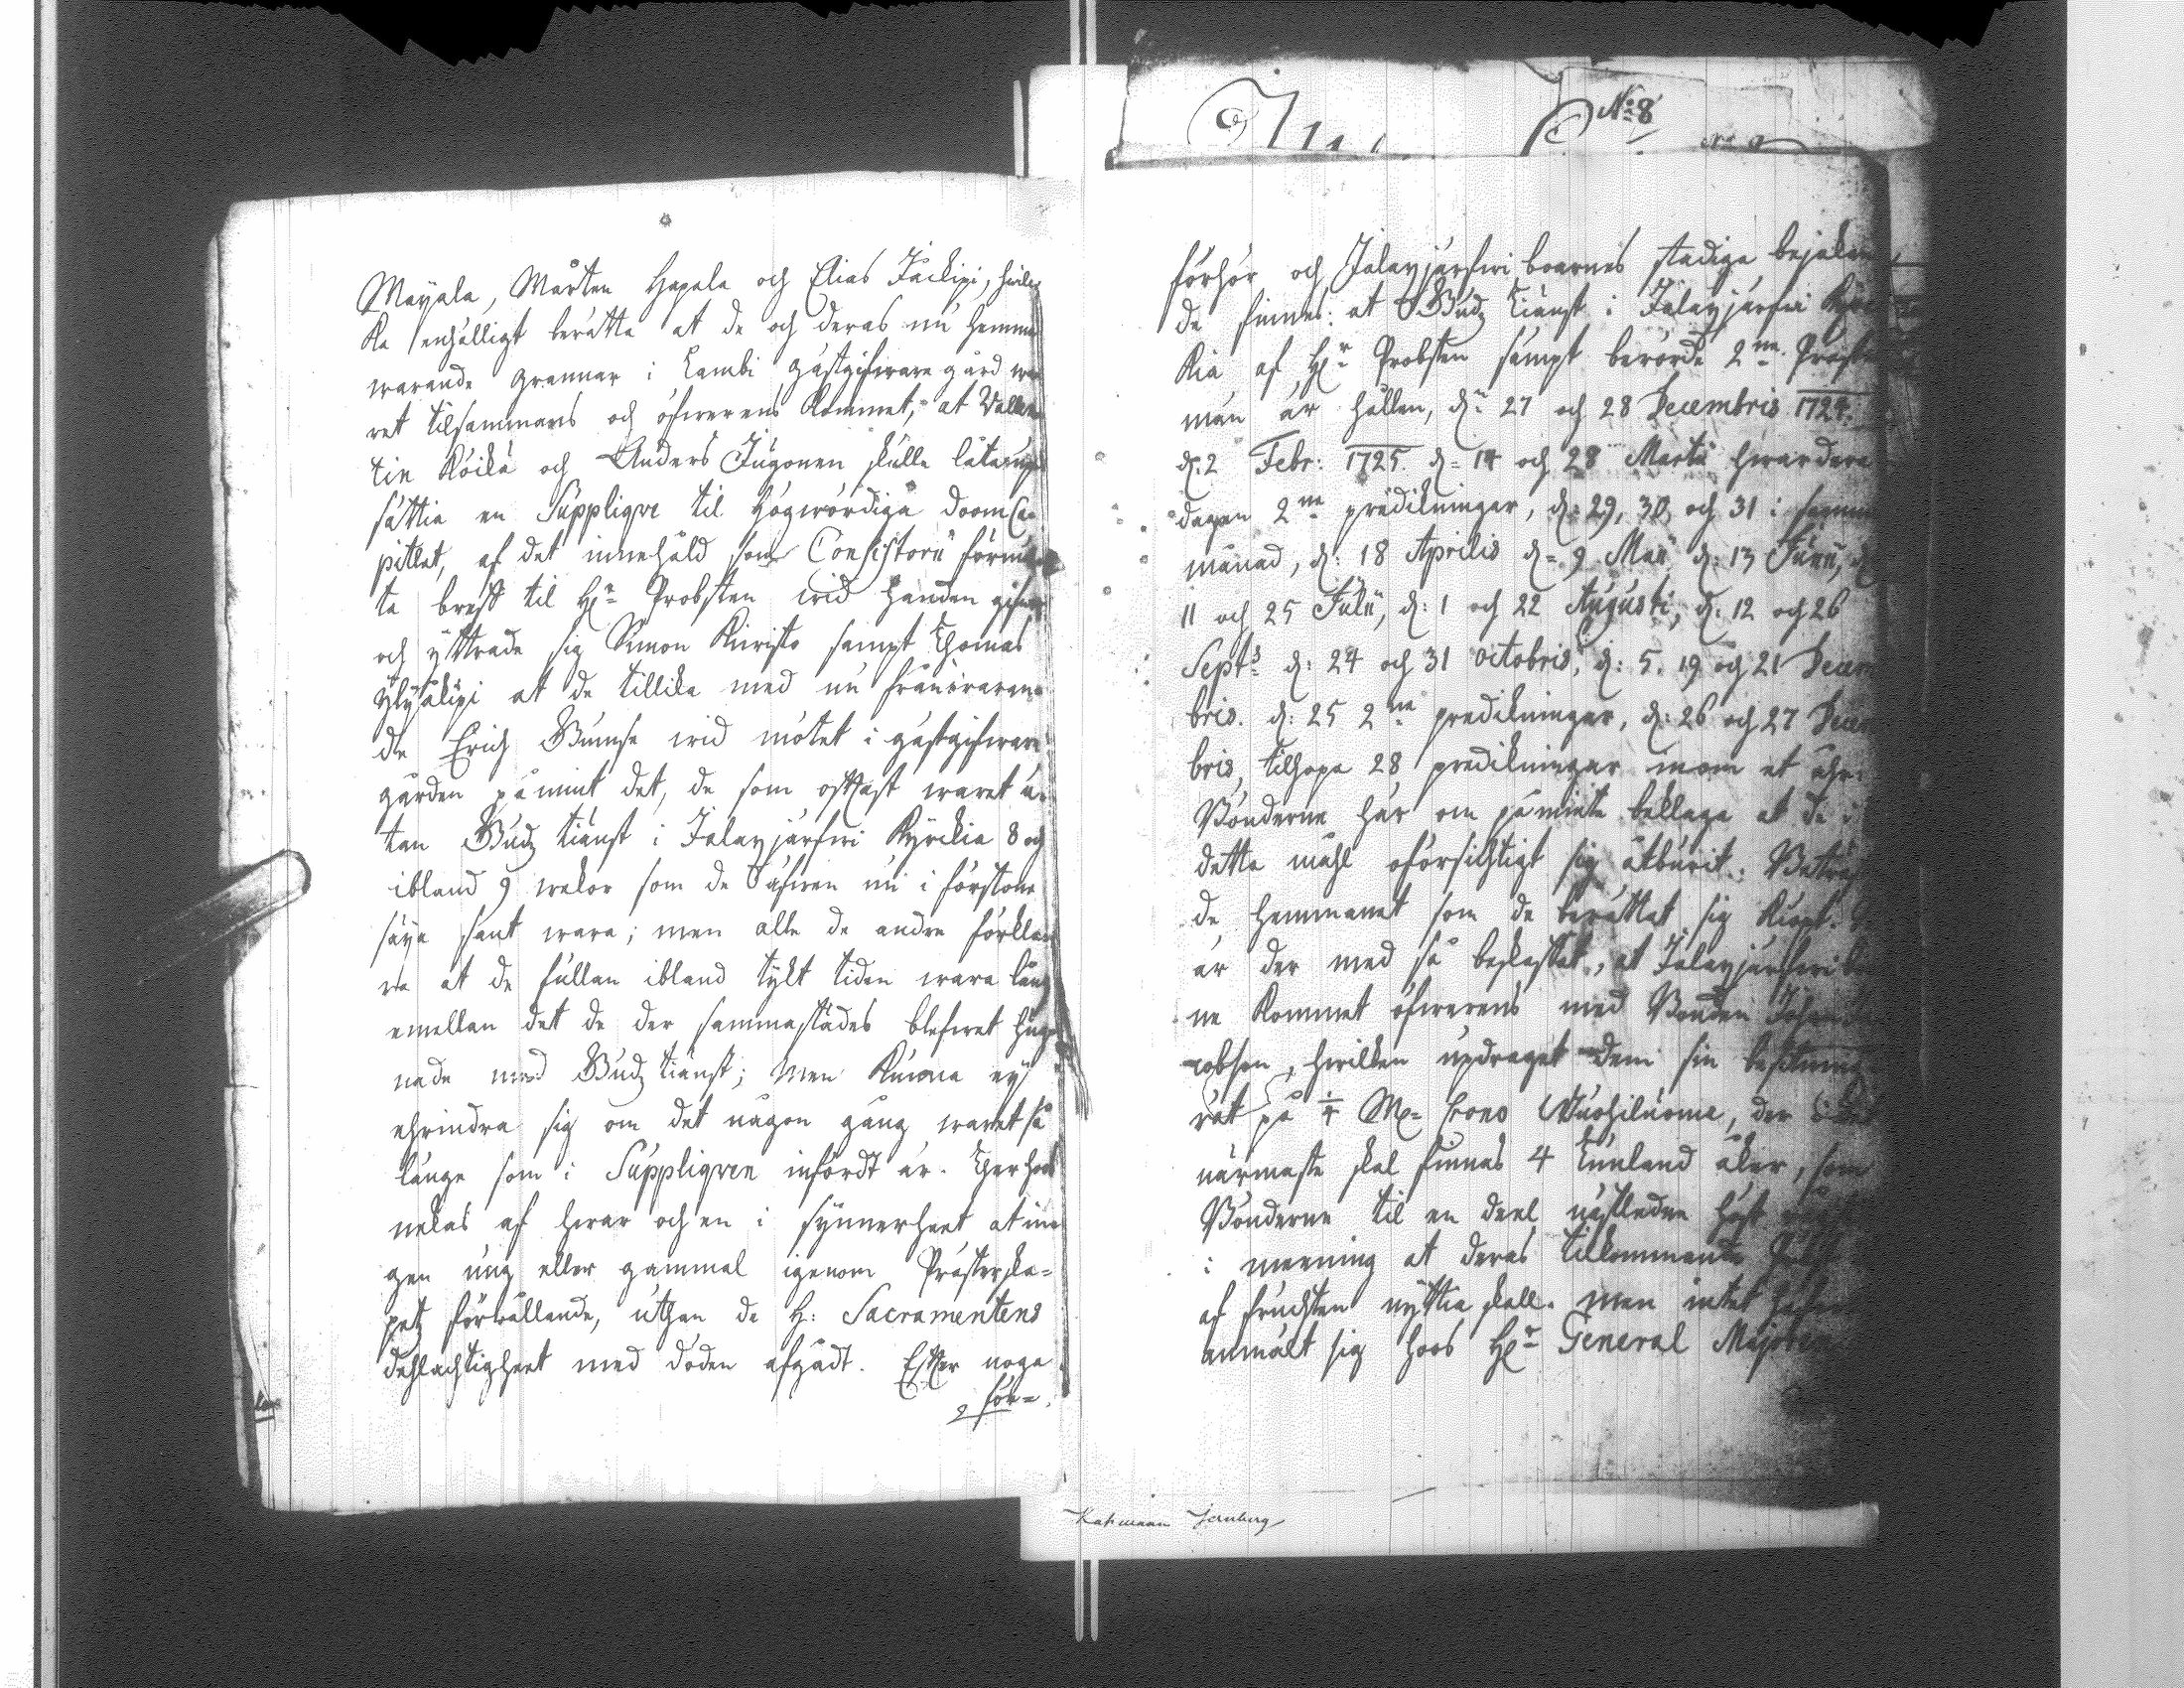 Mayala, Mårten Hapala och Elias Jäckipi, hwil
ka enhälligt berätta at de och deras nu hemma
warande grannar i Lambi gästgifware gård wa
ret tilsammans och öfwerens kommet, at Valen
tin Köikä och Anders Jugonen skulle låta up
sättia en Supplique til Högwördiga DoomCa-
pitlet, af det innehåld som Consistorii förmä
ta breff til Hr Probsten wid handen gifwer
och yttrade sig Simon Kiwisto sampt Thomas
Ylysälipi at de tillika med nu frånwaran-
de Erich Bumse wid mötet i gästgifware
gården påmint det, de som offtast waret u-
tan Gudz tiänst i Jalasjärfwi Kyrckia 8 og
ibland 9 wekor som de äfwen nu i förstone
säya sant wara; men alle de andre förkla
ra at de fullan ibland tykt tiden wara lång
emellan det de der sammastädes blefwet hug
nade med Gudz tiänst; Men kunna ey
ehrindra sig om det någon gång waret så
länge som i Suppliquen infördt är. Ther hoos
nekas af hwar och en i synnerheet at in
gen ung eller gammal igenom Prästerska-
petz förwållande, uthan de H: Sacramentens
dehlachtigheet med döden afgådt. Effter noga
för-
No 8
förhör och Jalasjärfwi boarnes stadiga bejakan
de finnes: at Gudz tiänst i Jalasjärfwi Kyrc
kia af Hr Probsten sampt berörde 2ne Präste
män är hållen, d: 27 och 28 Decembris 1724.
d. 2 Febr: 1725. d: 14 och 28 Martii hwardera
dagen 2ne prädikningar, d: 29, 30, och 31 i samma
månad, d: 18 Aprilis d: 9 Maii, d: 13 Junii, d
11 och 25 Julii, d: 1 och 22 Augusti, d: 12 och 26
Septs d: 24 och 31 Octobris, d: 5. 19 och 21 Decem
bris. d: 25 2ne predikningar, d: 26 och 27 Decem
bris, tilhopa 28 predikningar inom et åhr.
Bönderne här om påminte beklaga at de i
detta mahl oförsichtigt sig åtburit. Beträf
de hemmanet som de berättat sig kiöpt
är der med så beskaffat, at Jalasjärfwi bo
ne kommet öfwerens med Bonden Johan
cobson, hwilken updraget dem sin besittning
rät på 1/4 M. Crono Wuohiluoma, der
närmaste skal finnas 4 tunland åker, som
Bönderne til en deel nästledne höst
i meening at deras tilkommande
af fruchten nyttia skall. Men intet hafwa
anmält sig hoos Hr General Majoren
Katimaan Jernberg